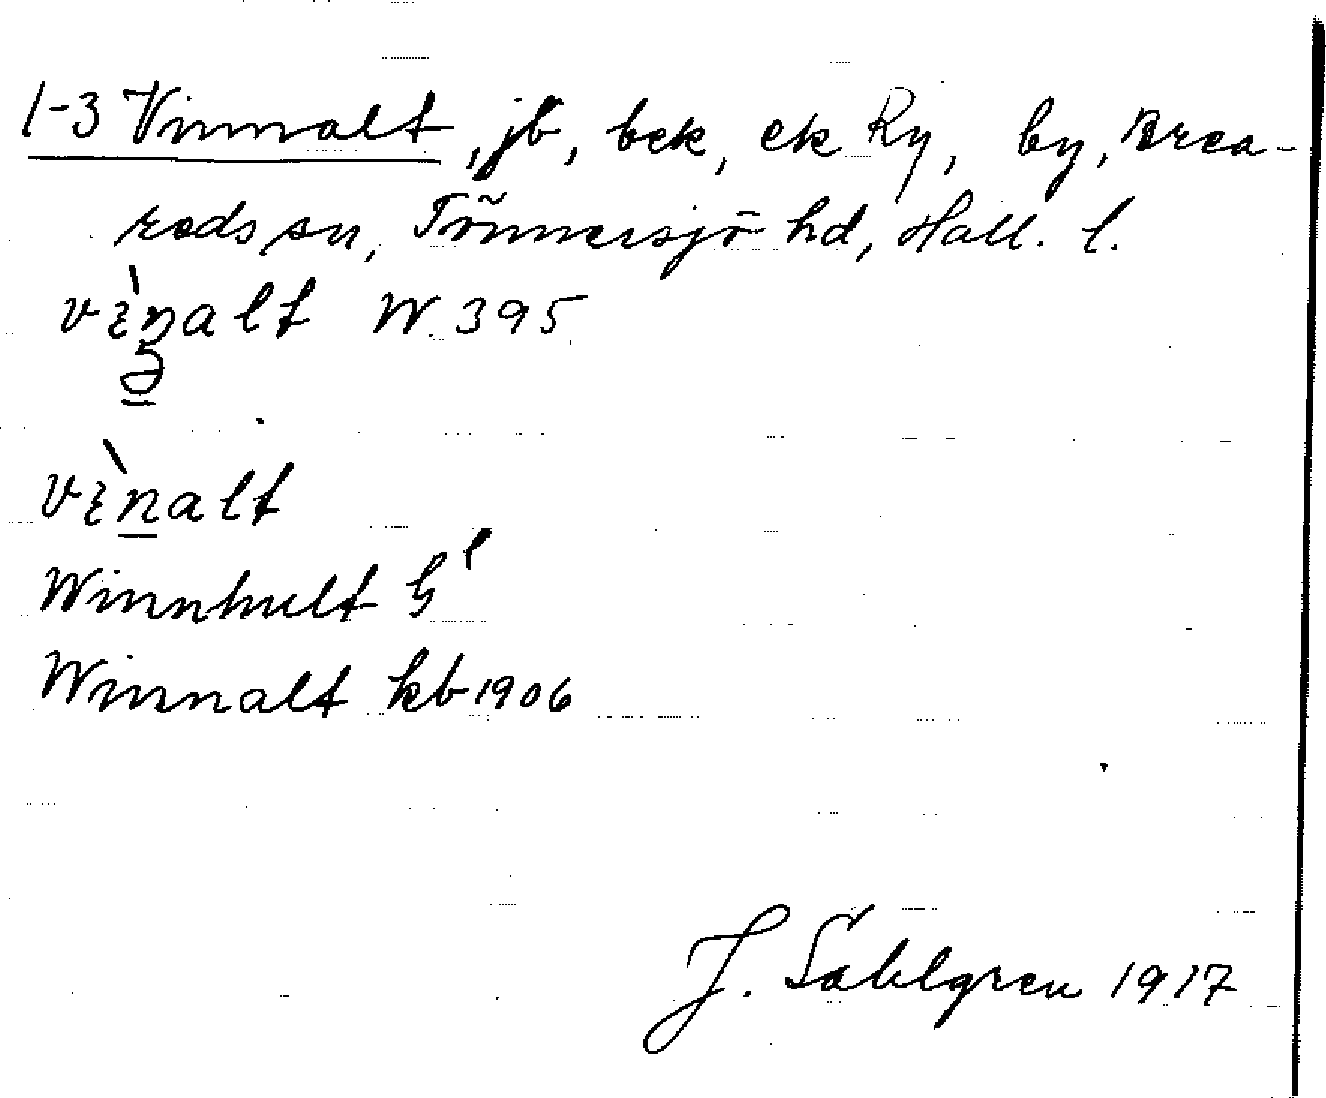 1-3 Vinnalt, jb, bek, ek Ry, by, Brea-
reds sn, Tönnersjö hd, Hall. l.
W. 395
Winnhult
Winnalt kb 1906
J. Sahlgren 1917